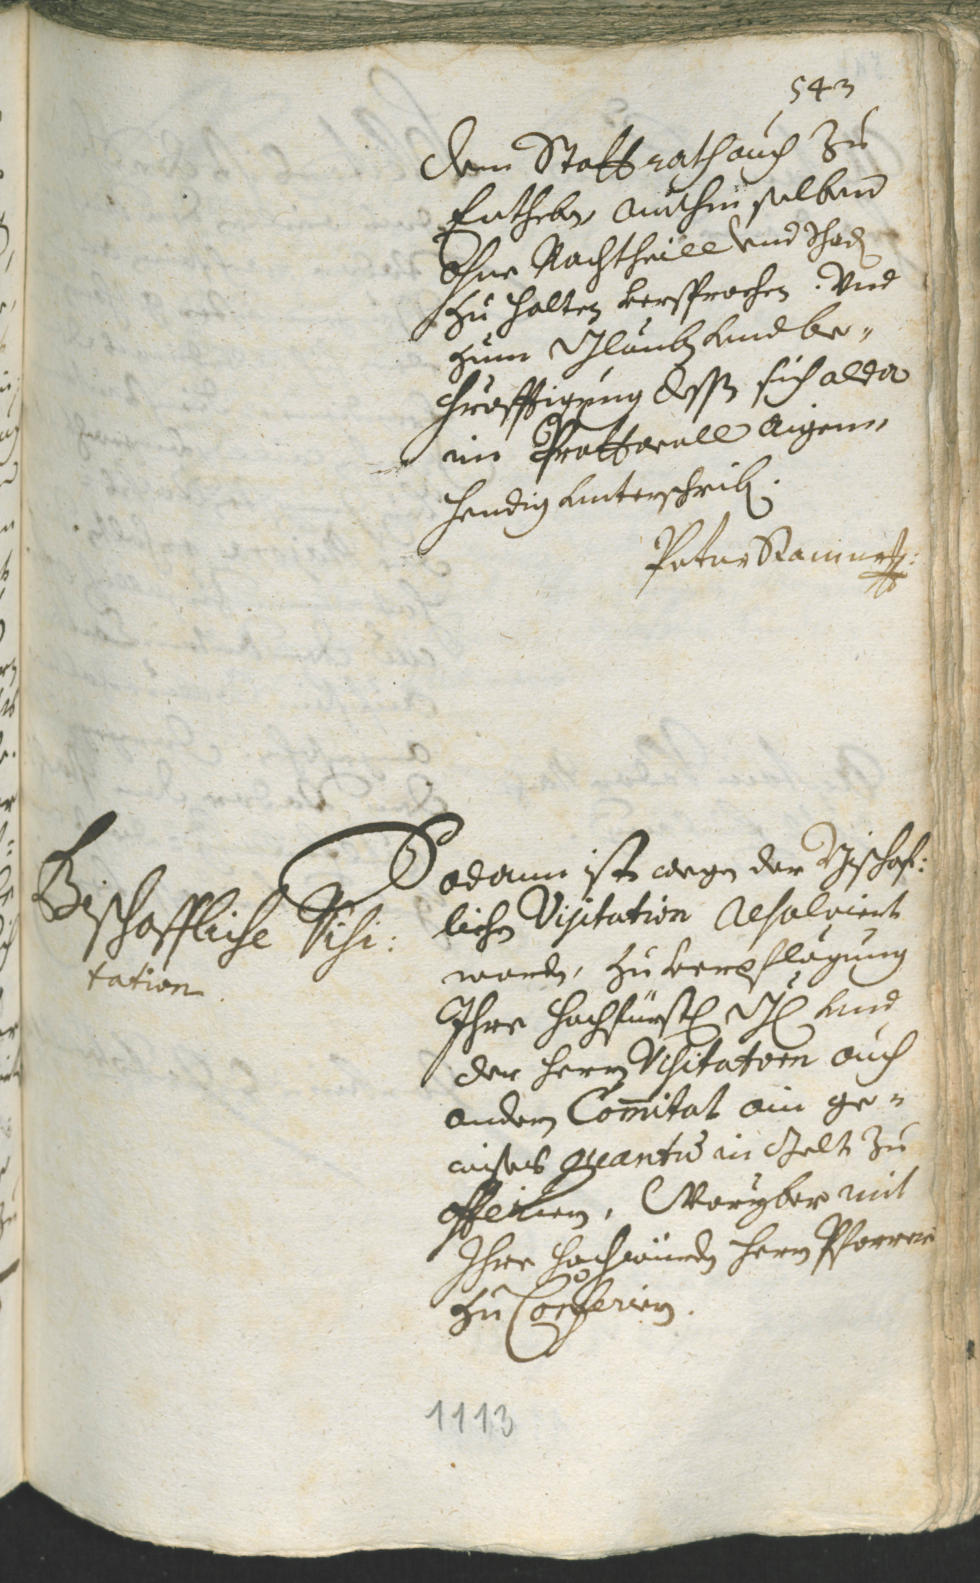 543
dem Statt rath auch zu
Entheben, mithin selben
Ohne Nachtheill und Schad
zu halten versprochen. Und
zum Glaub und be-
kräfftigung dessen sich alda
im Prottocoll aigen-
hendig unterschrib.
Peter Ramer
Bischoffliche Visi:
tation.
Sodann ist wegen der Bischof:
lichen Visitation resolviert
worden, zu verpflägung
Ihro hochfürstl Gl und
der herrn Visitatorn auch
andern Comitat ein ge-
wises quantum in Gelt zu
offerirn, Woryber mit
Ihro hochwürden herrn Pfarrer
zu Conferirn.
1113